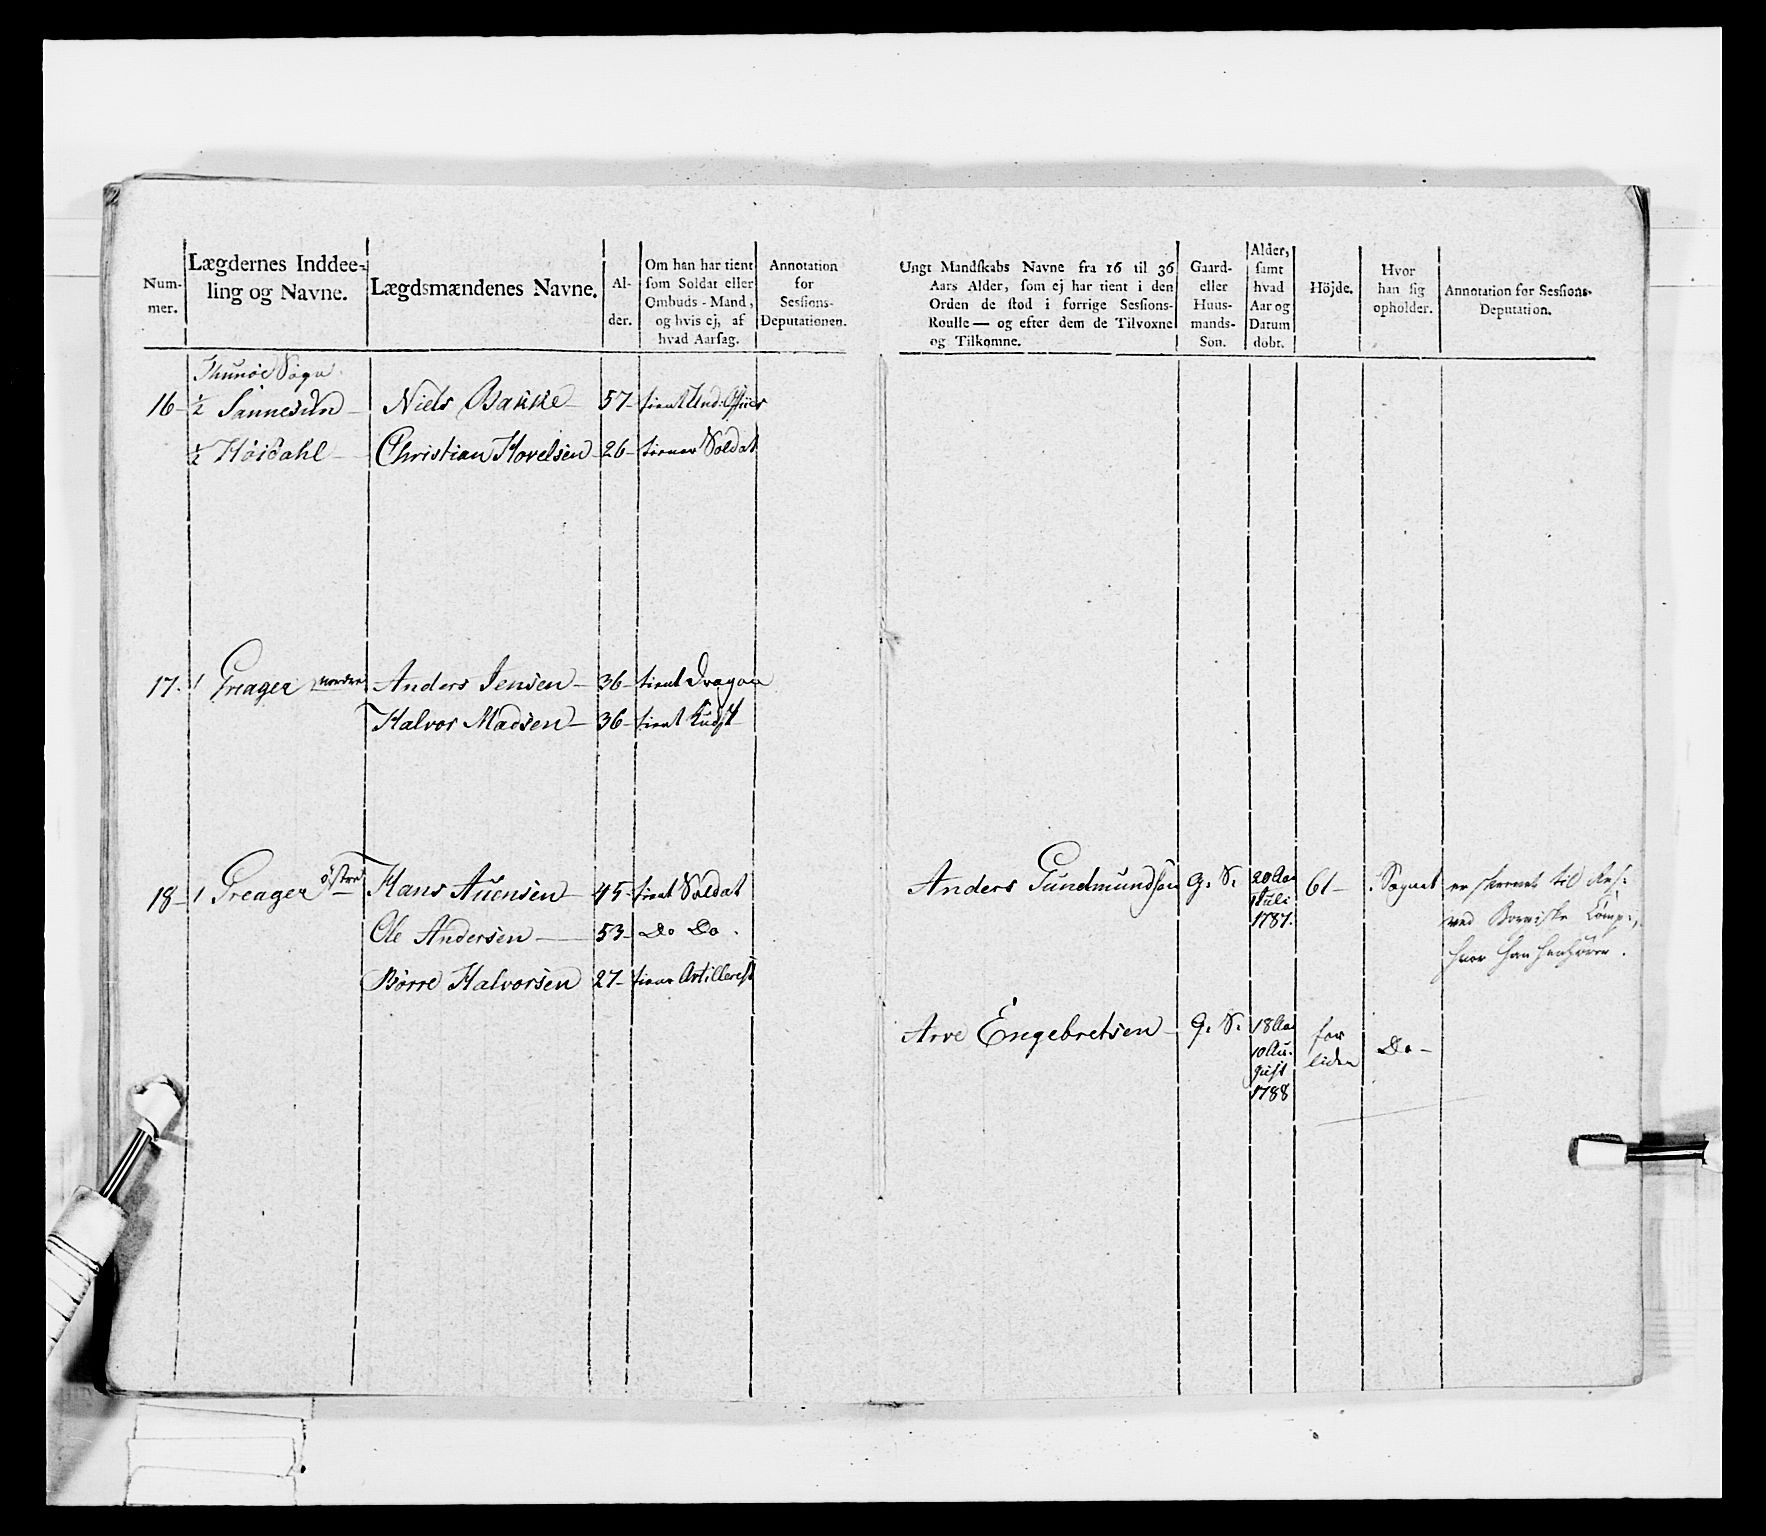 Num-
mer.
Lægdernes Inddee-
ling og Navne.
Lægdsmændenes Navne.
Al-
der.
Om han har tient
som Soldat eller
Ombuds-Mand,
og hvis ej, af
hvad Aarsag.
Annotation
for
Sessions-
Deputationen.
Thunöe Sogn
16 – ½ Sannesund – Niels Bakke – 57 – tient Und: Officer
½ Höidahl – Christian Hovelsen 26 – tiener Soldat
17. 1 Greager nordre Anders Jensen – 36 – tient Dragon
Halvor Madsen – 36 – tient
18 – 1 Greager östre Hans Auensen – 45 – tient Soldat
Ole Andersen – 53 – Do Do.
Börre Halvorsen 27 – tiener Artillerist
Ungt Mandskabs Navne fra 16 til 36
Aars Alder, som ej har tient i den
Orden de stod i forrige Sessions-
Roulle — og efter dem de Tilvoxne
og Tilkomne.
Gaard-
eller
Huus-
mands-
Son.
Alder,
samt
hvad
Aar og
Datum
dobt.
Höjde.
Hvor
han sig
opholder.
Annotation for Sessions-
Deputation.
Anders Gundmundsen G. S. 20 Aar 61 – Sognet er til
Juli ved Comp:,
1787. hvor han henhörer.
Arve Engebretsen – G. S. 18 Aar for Do –
10 Au- liden
gust
1788